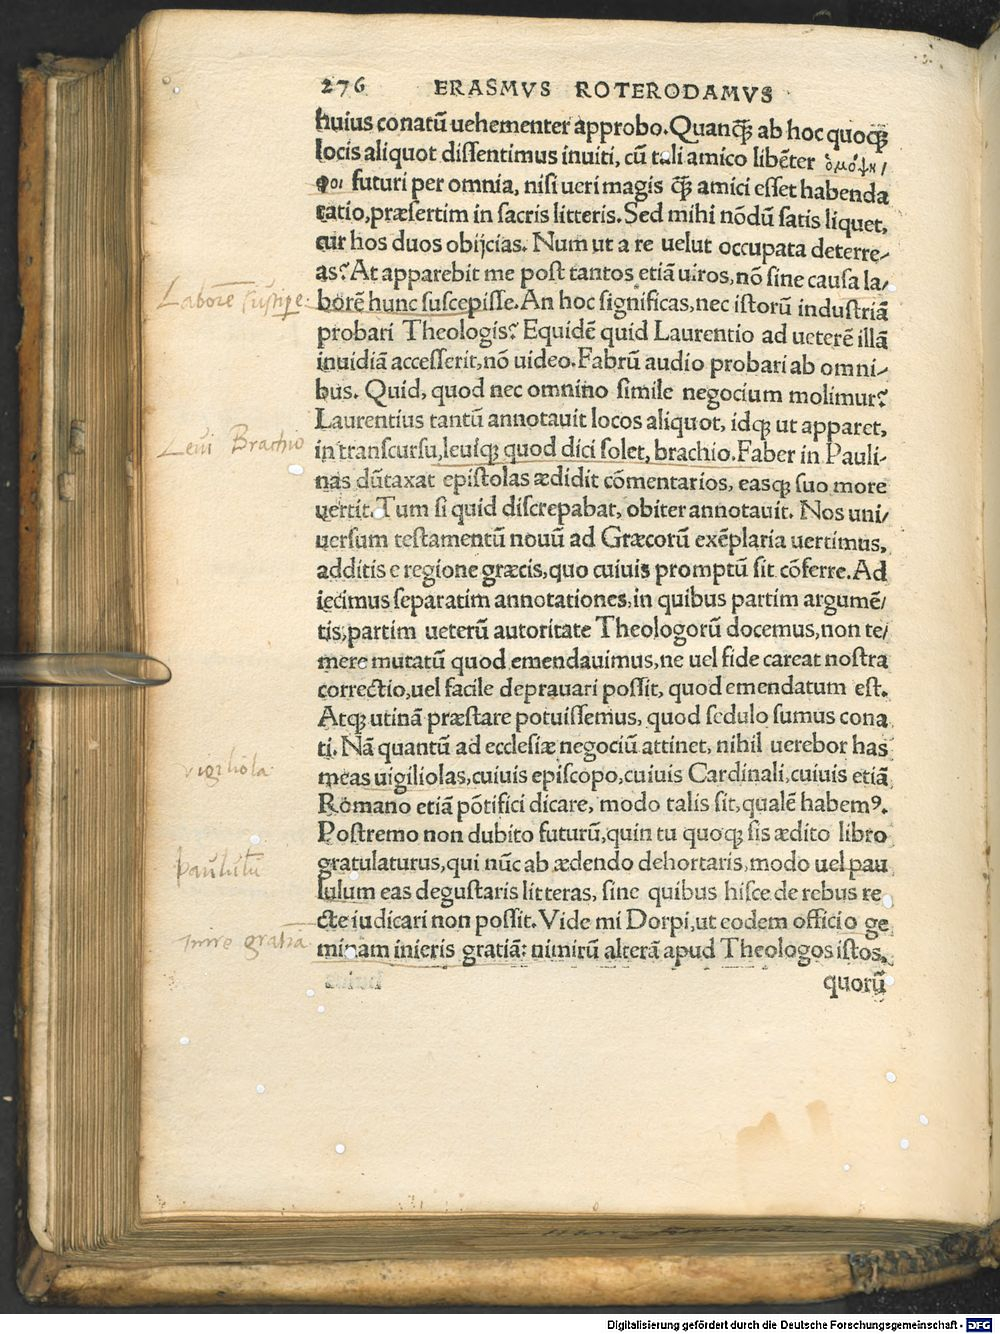 276 ERASMVS ROTERODAMVS
huius conatū uehementer approbo. Quanꝗ̃ ab hoc quoꝗ̃
locis aliquot dissentimus inuiti, cū tali amico libēter ὁμόψη/
φοι futuri per omnia, nisi ueri magis ꝗ̃ amici esset habenda
ratio, præsertim in sacris litteris. Sed mihi nōdū satis liquet,
cur hos duos obijcias. Num ut a re uelut occupata deterre/
as? At apparebit me post tantos etiā uiros, nō sine causa la/
Laborē suscipe
borē hunc suscepisse. An hoc significas, nec istorū industriā
probari Theologis? Equidē quid Laurentio ad ueterē illā
inuidiā accesserit, nō uideo. Fabrū audio probari ab omni/
bus. Quid, quod nec omnino simile negocium molimur?
Laurentius tantū annotauit locos aliquot, idꝗ ut apparet,
Leui Brachio
in transcursu, leuiꝗ quod dici solet, brachio. Faber in Pauli/
nas dūtaxat epistolas ædidit cōmentarios, easꝗ suo more
uertit. Tum si quid discrepabat, obiter annotauit. Nos uni/
uersum testamentū nouū ad Græcorū exēplaria uertimus,
additis e regione græcis, quo cuiuis promptū sit cōferre. Ad
iecimus separatim annotationes, in quibus partim argumē/
tis, partim ueterū autoritate Theologorū docemus, non te/
mere mutatū quod emendauimus, ne uel fide careat nostra
correctio, uel facile deprauari possit, quod emendatum est.
Atꝗ utinā præstare potuissemus, quod sedulo sumus cona
ti. Nā quantū ad ecclesiæ negociū attinet, nihil uerebor has
vigiliola
meas uigiliolas, cuiuis episcopo, cuiuis Cardinali, cuiuis etiā
Romano etiā pōtifici dicare, modo talis sit, qualē habemꝰ.
Postremo non dubito futurū, quin tu quoꝗ sis ædito libro
paululū
gratulaturus, qui nūc ab ædendo dehortaris, modo uel pau
lulum eas degustaris litteras, sine quibus hisce de rebus re
cte iudicari non possit. Vide mi Dorpi, ut eodem officio ge
inire gratiā
minam inieris gratiā: nimirū alterā apud Theologos istos,
quorū
Digitalisierung gefördert durch die Deutsche Forschungsgemeinschaft - DFG